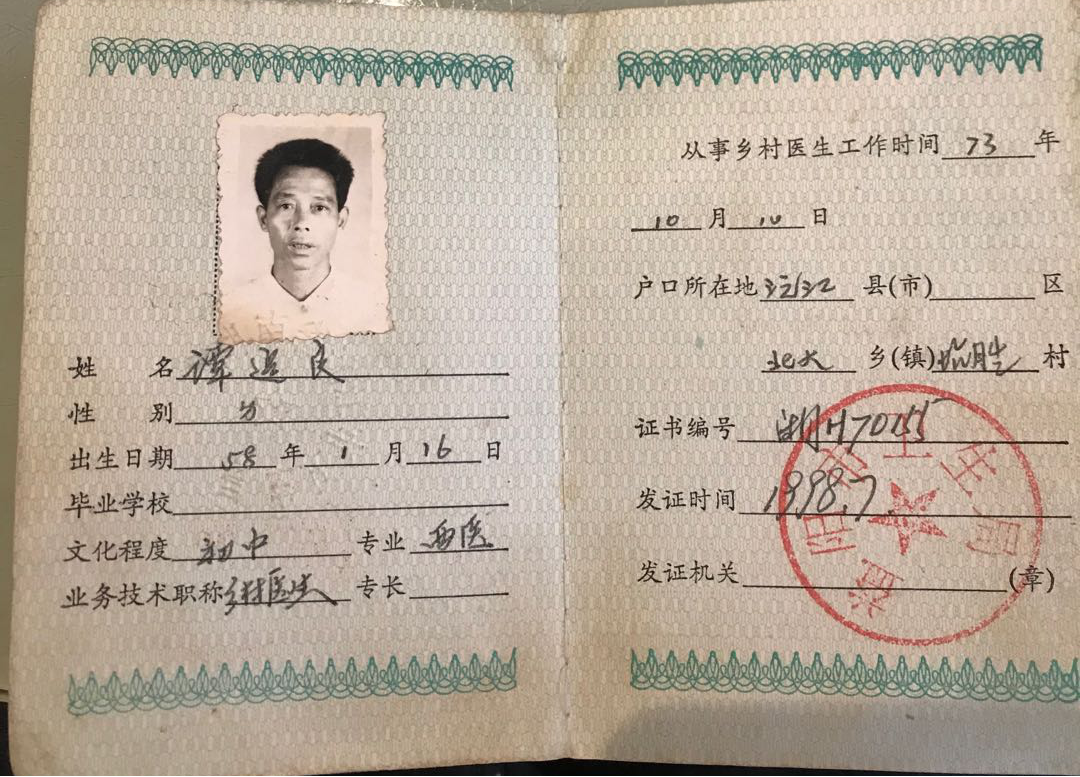 姓 名 谭迢良
性 别 男
出生日期 58 年 1 月 16 日
毕业学校
文化程度 初中 专业 西医
业务技术职称 乡村医生 专长
从事乡村医生工作时间 73 年
10 月 10 日
户口所在地 沅江 县(市) 区
北大 乡(镇) 村
证书编号 湖H70155
发证时间 1998.7.
发证机关 (章)
益阳市卫生局